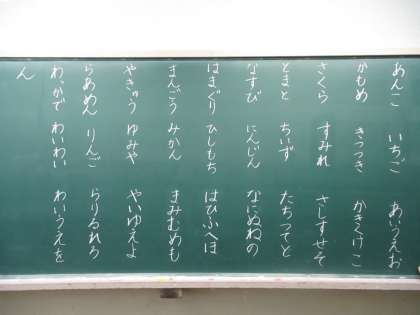 あんこ　いちご　あいうえお
かもめ　きつつき　かきくけこ
さくら　すみれ　さしすせそ
とまと　ちいず　たちつてと
なすび　にんじん　なにぬねの
はまぐり　ひしもち　はひふへほ
まんごう　みかん　まみむめも
やきゅう　ゆみや　やいゆえよ
らあめん　りんご　らりるれろ
わっかで　わいわい　わいうえを
ん